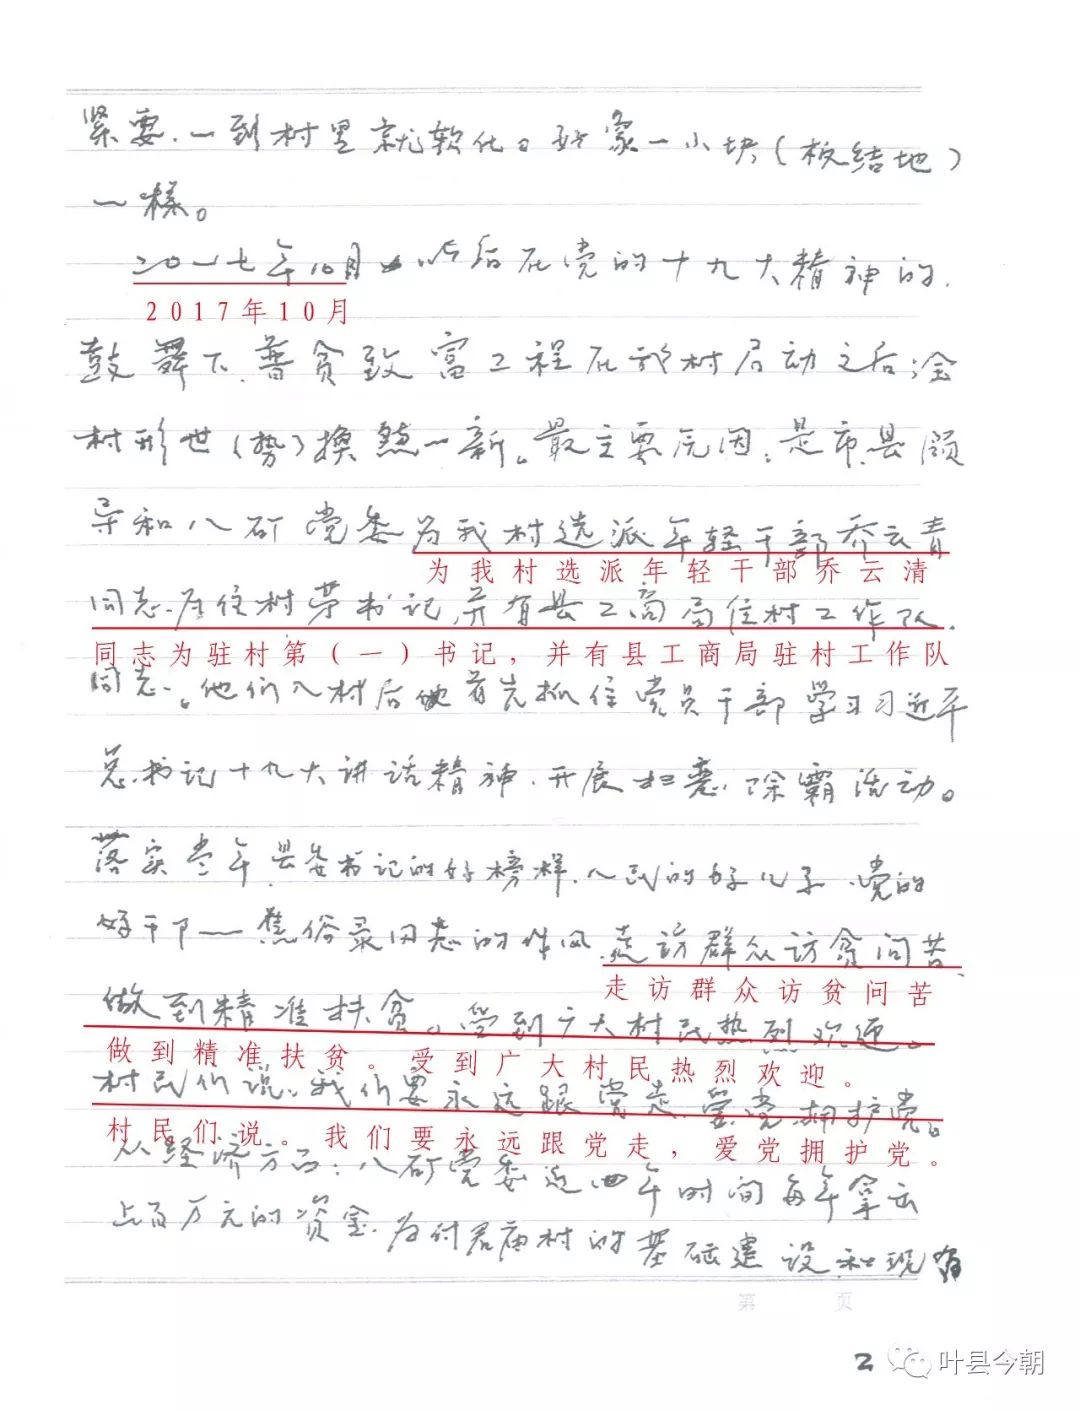 紧要.一到村里就软化。好象一小块(板结地)
一样。
二〇一七年10月 以后在党的十九大精神的.
2017年10月
鼓舞下.普贫致富工程在我村启动之后;全
村形世(势)换然一新。最主要原因:是市.县领
导和八矿党委为我村选派年轻干部乔云青
为我村选派年轻干部乔云清
同志.为住村第书记,并有县工商局住村工作队.
同志为驻村第(一)书记,并有县工商局驻村工作队
同志。他们入村后 首先抓住党员干部学习习近平
总书记十九大讲话精神.开展扫恶.除霸活动。
落实当年.县委书记的好榜样.人民的好儿子.党的
好干部——焦俗录同志的作风.走访群众访贫问苦、
走访群众访贫问苦
做到精准扶贫。受到广大村民热烈欢迎。
做到精准扶贫。受到广大村民热烈欢迎。
村民们说:我们要永远跟党走.爱党.拥护党。
村民们说。我们要永远跟党走,爱党拥护党。
从经济方面:八矿党委近四年时间每年拿出
上百万元的资金.为付君庙村的基础建设和现有
第 页
2
叶县今朝